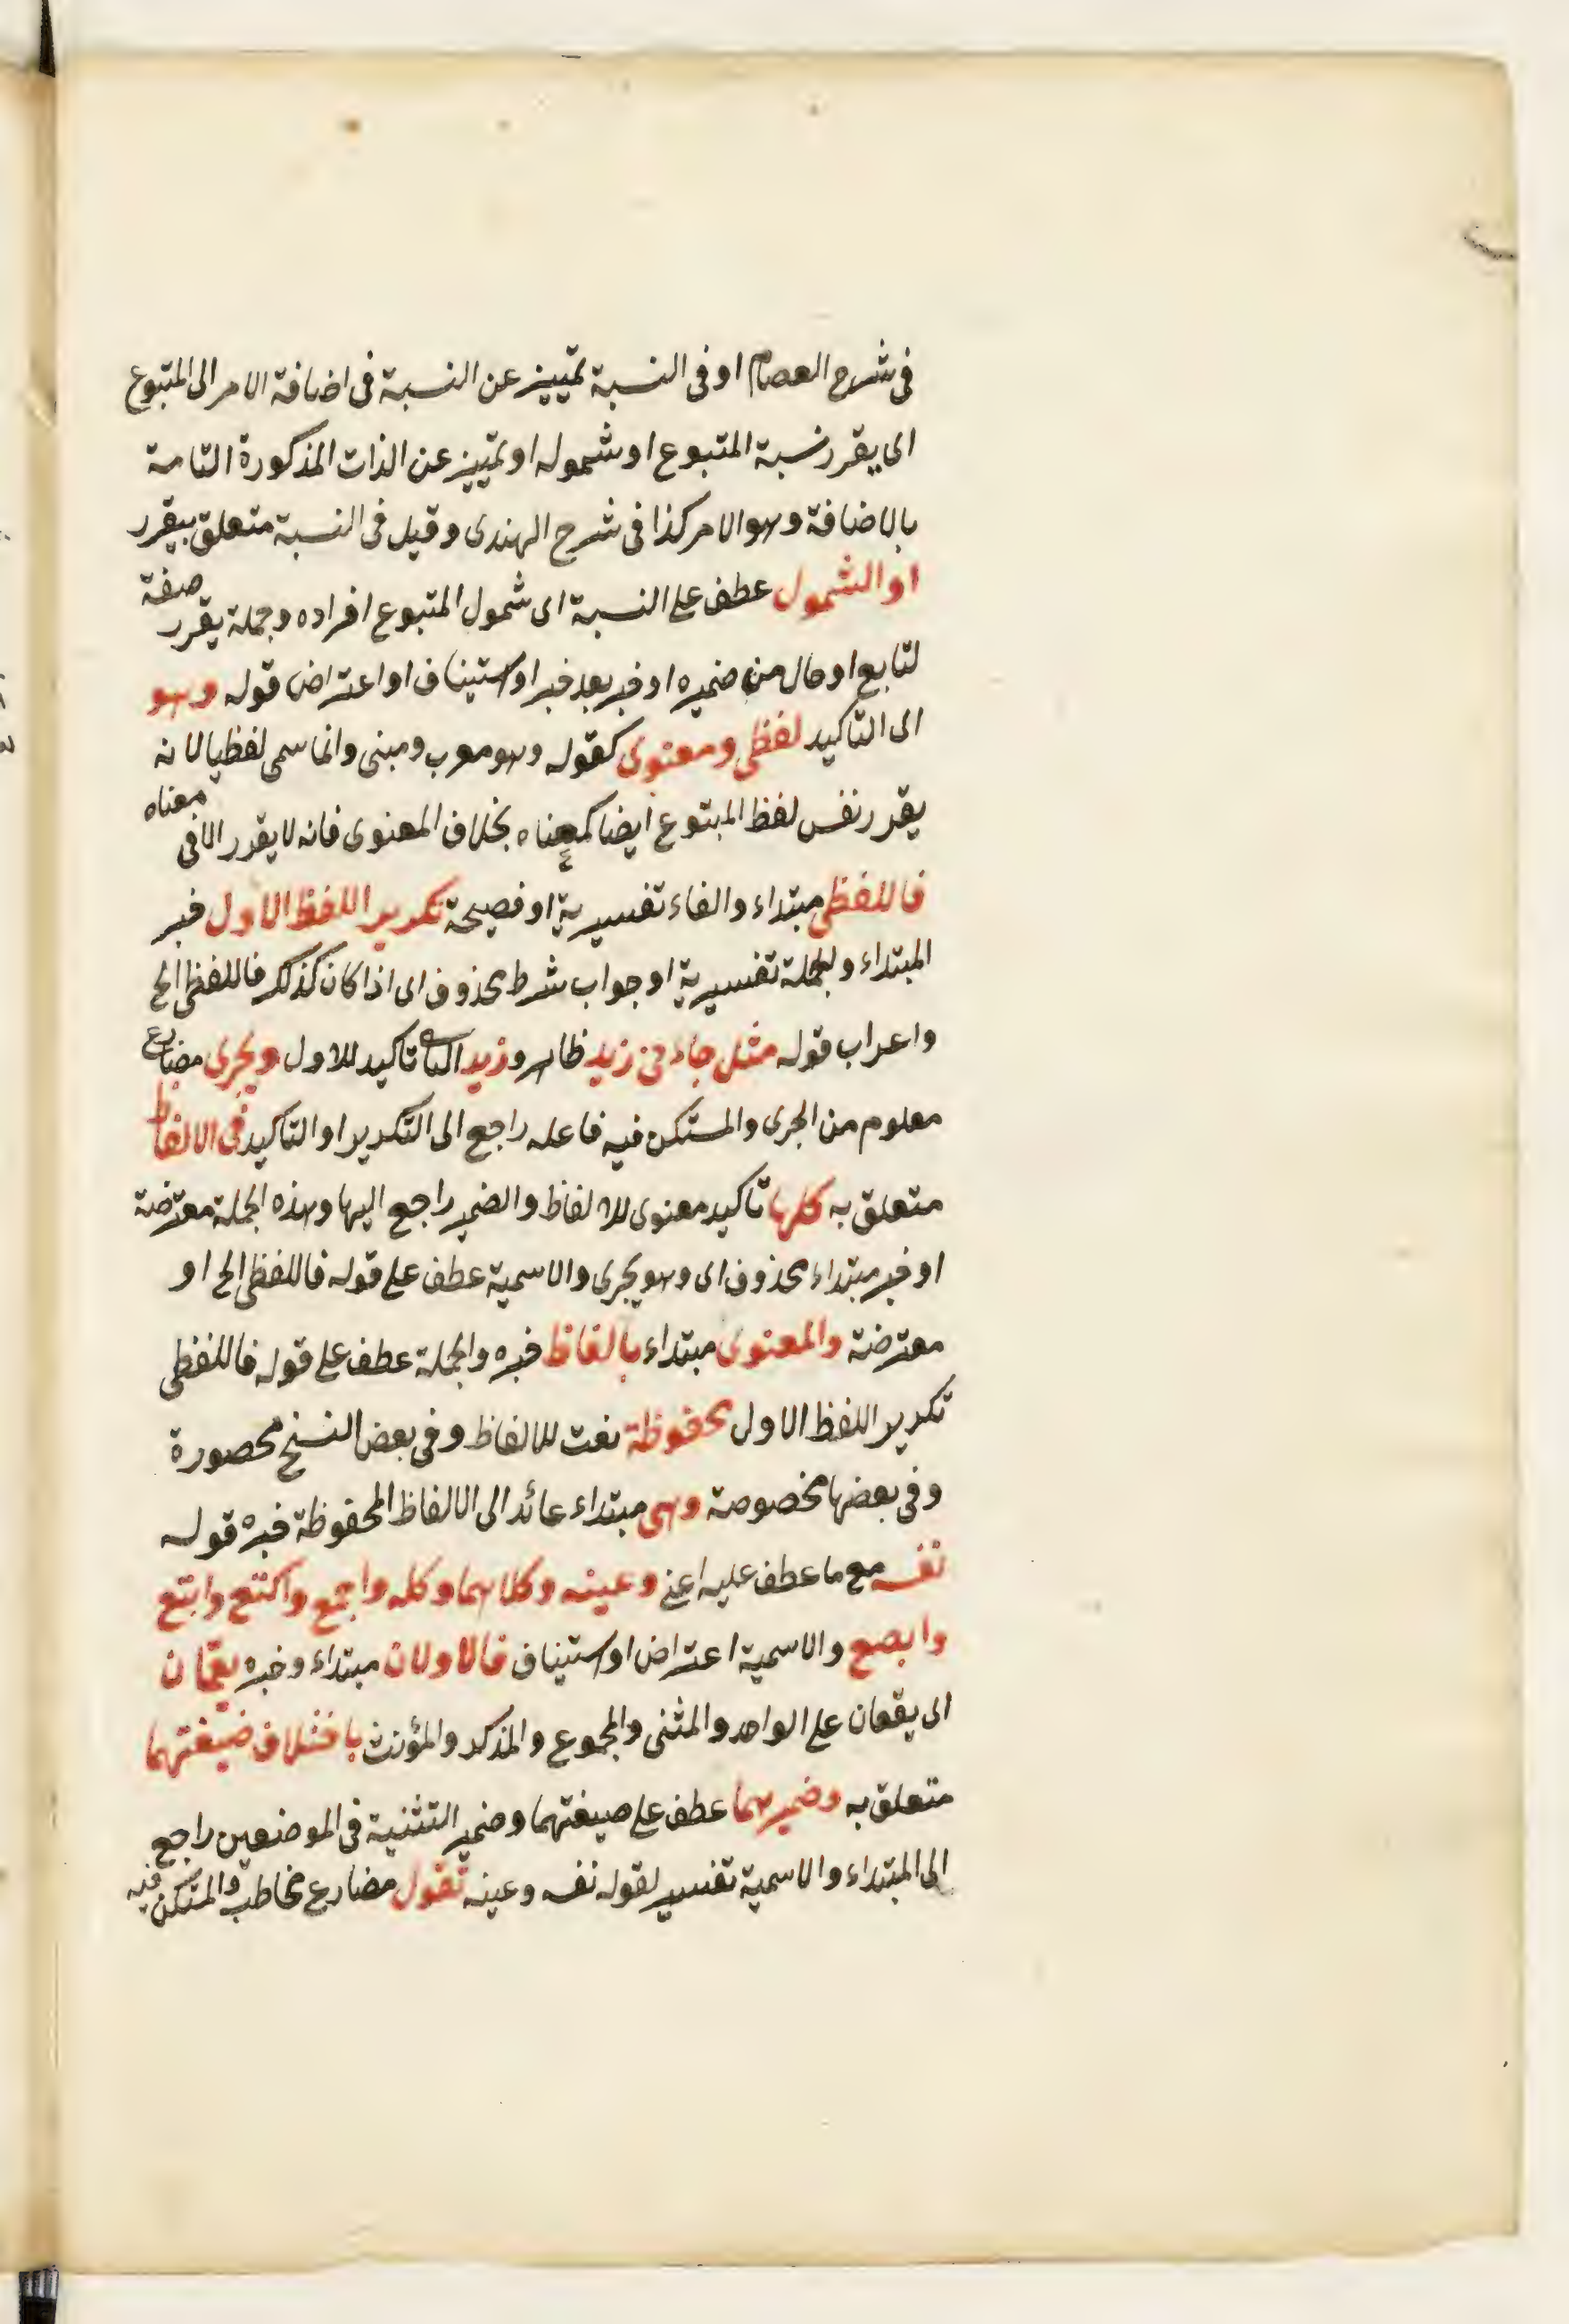 في شرح العصام او في النسبة تمييز عن النسبة في اضافة الامر الى المتبوع
اى يقرر نسبة المتبوع او شموله او تمييز عن الذات المذكورة التامة
بالاضافة وهو الامر كذا في شرح الهندى وقيل في النسبة متعلق بيقرر
او الشمول عطف على النسبة اى شمول المتبوع افراده وجملة يقرر صفة
لتابع او حال من ضميره او خبر بعد خبر او استيناف او اعتراض قوله وهو
اى التاكيد لفظى ومعنوى كقوله وهو معرب ومبنى وانما سمى لفظيا لانه
يقرر نفس لفظ المبتوع ايضا كمعناه بخلاف المعنوى فانه لا يقرر الا في معناه
فاللفظى مبتداء والفاء تفسيرية او فصيحة تكرير اللفظ الاول خبر
المبتداء والجملة تفسيرية او جواب شرط محذوف اى اذا كان كذلك فاللفظى الخ
واعراب قوله مثل جاءنى زيد ظاهر وزيد الثانى تاكيد للاول ويجرى مضارع
معلوم من الجرى والمستكن فيه فاعله راجع الى التكرير او التاكيد في الالفاظ
متعلق به كلها تاكيد معنوى للالفاظ والضمير راجع اليها وهذه الجملة معترضة
او خبر مبتداء محذوف اى وهو يجرى والاسمية عطف على قوله فاللفظى الخ او
معترضة والمعنوى مبتداء بالفاظ خبره والجملة عطف على قوله فاللفظى
تكرير اللفظ الاول محفوظة نعت للالفاظ وفى بعض النسخ محصورة
وفى بعضها مخصوصة وهى مبتداء عائد الى الالفاظ المحفوظة خبره قوله
نفسه مع ما عطف عليه اعنى وعينه وكلاهما وكله واجمع واكتع وابتع
وابصع والاسمية اعتراض او استيناف فالاولان مبتداء وخبره يعمان
اى يقعان على الواحد والمثنى والمجموع والمذكر والمؤنث باختلاف صيغتهما
متعلق به وضميرهما عطف على صيغتهما وضمير التثنية في الموضعين راجع
الى المبتداء والاسمية تفسير لقوله نفسه وعينه تقول مضارع مخاطب والمستكن فيه